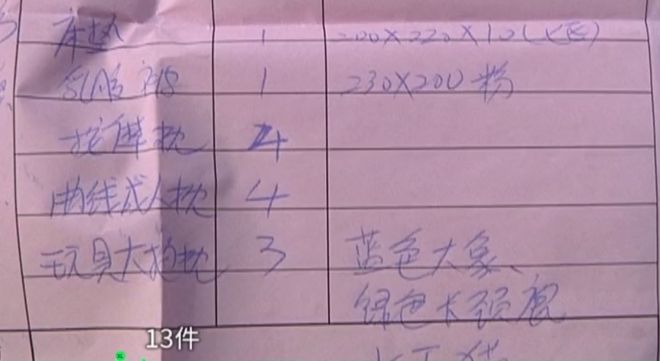 床垫 1 200X220X10
乳胶被 1 230X200 粉
按摩枕 4
曲线成人枕 4
玩具大抱枕 3 蓝色大象、
绿色长颈鹿
13件